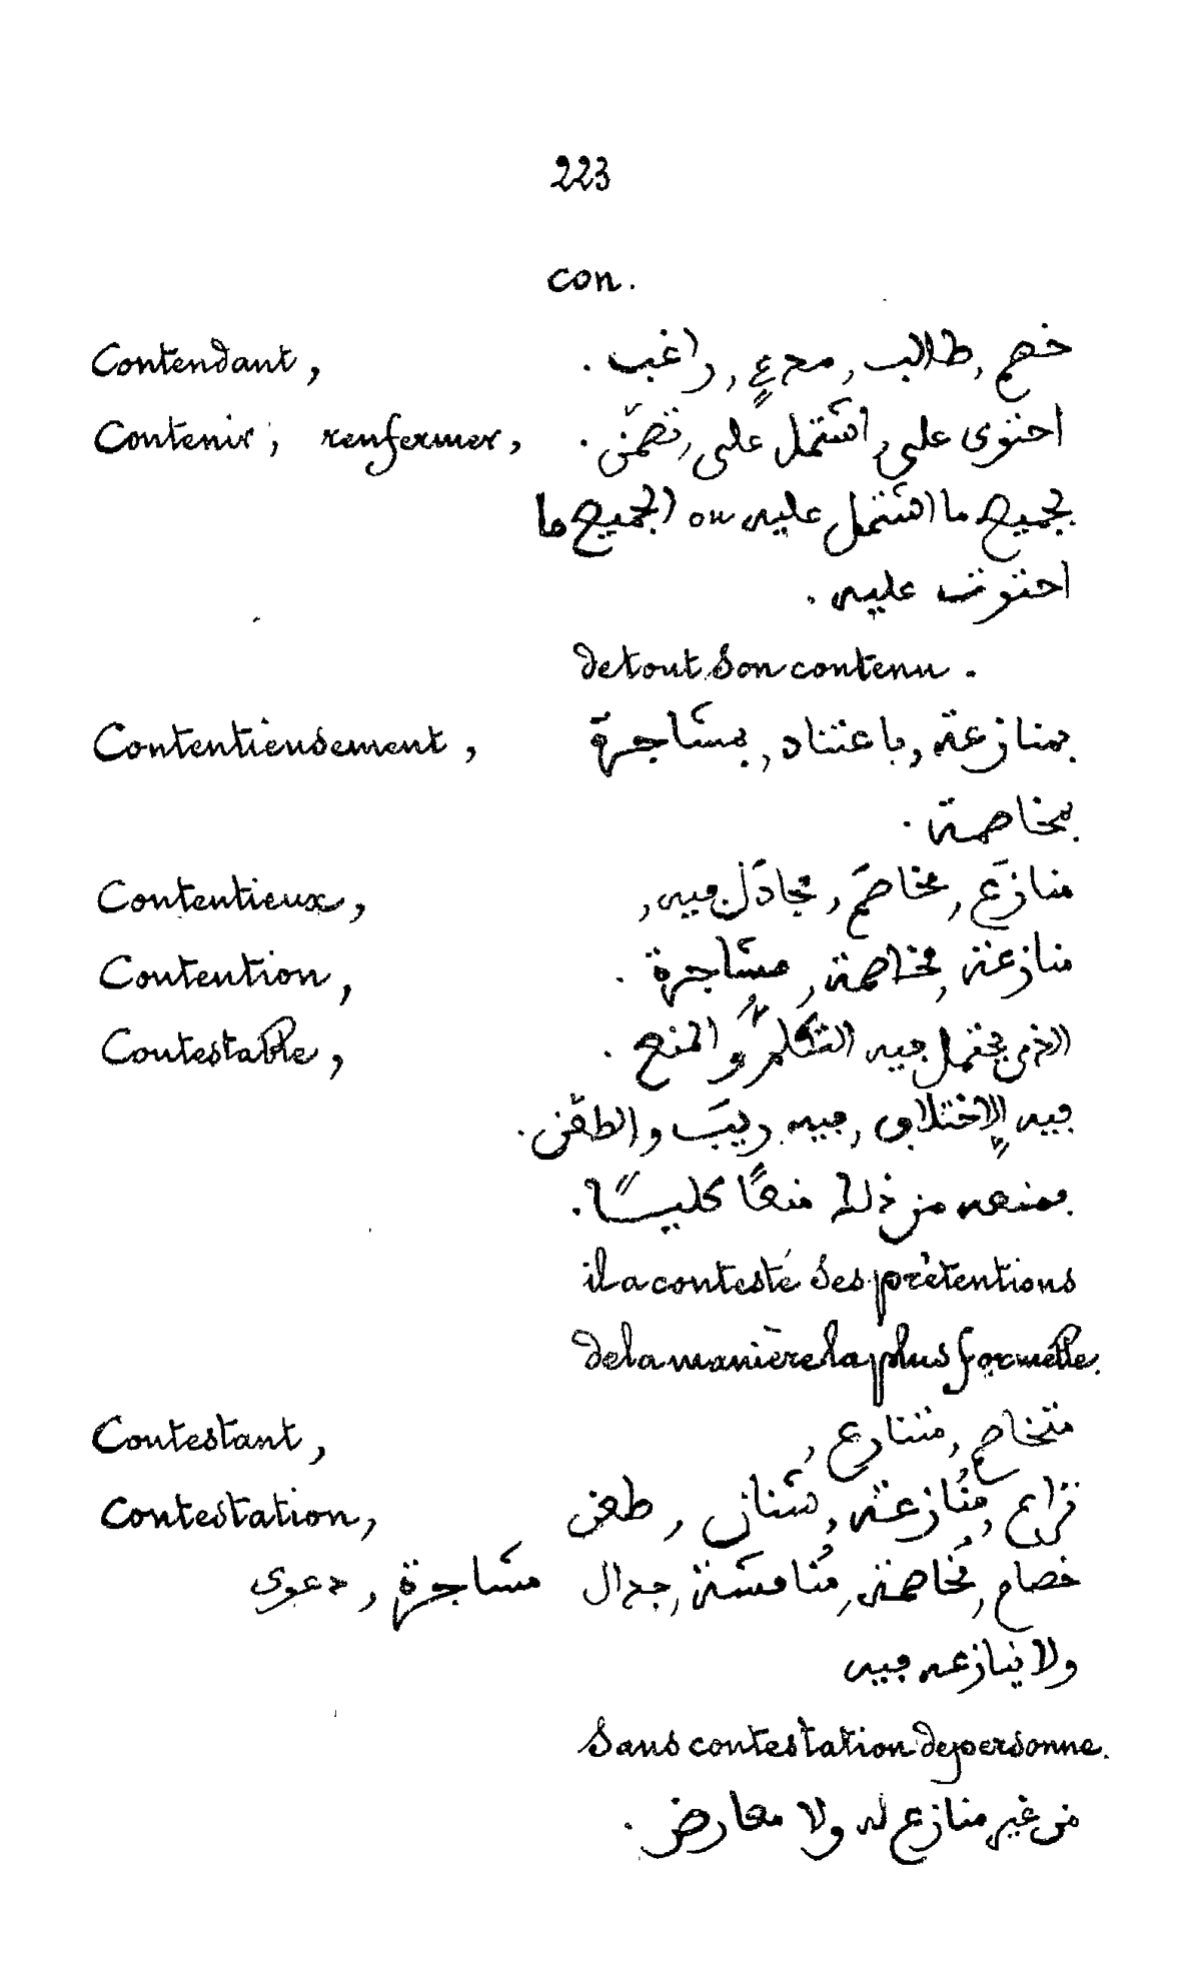 223
con.
Contendant, خصم, طالب, مدعٍ, راغب.
Contenir, renfermer, احتوى على, اشتمل على, تضمّن.
بجميع ما اشتمل عليه ou الجميع ما
احتوت عليه.
de tout son contenu.
Contentieusement, بمنازعة, باعتناد, بمشاجرة
بمخاصمة.
Contentieux, منازَع, مخاصَم, مجادَل فيه,
Contention, منازعة, مخاصمة, مشاجرة.
Contestable, الذى يحتمل فيه التكلمُ والمنع.
فيه الاٍختلاف, فيه ريبَ والطعَن.
فمنعه من ذلك منعاً كليـاً.
il a contesté ses prétentions
de la manière la plus formelle.
Contestant, متخاصم, متنازع,
Contestation, نزاع, مُنازعة, شنان, طعن
خصام, مُخاصمة, مُنافسَة, جدال مشاجرة, دعوى
ولا ينازعه فيه
Sans contestation de personne.
من غير منازع له ولا معارض.